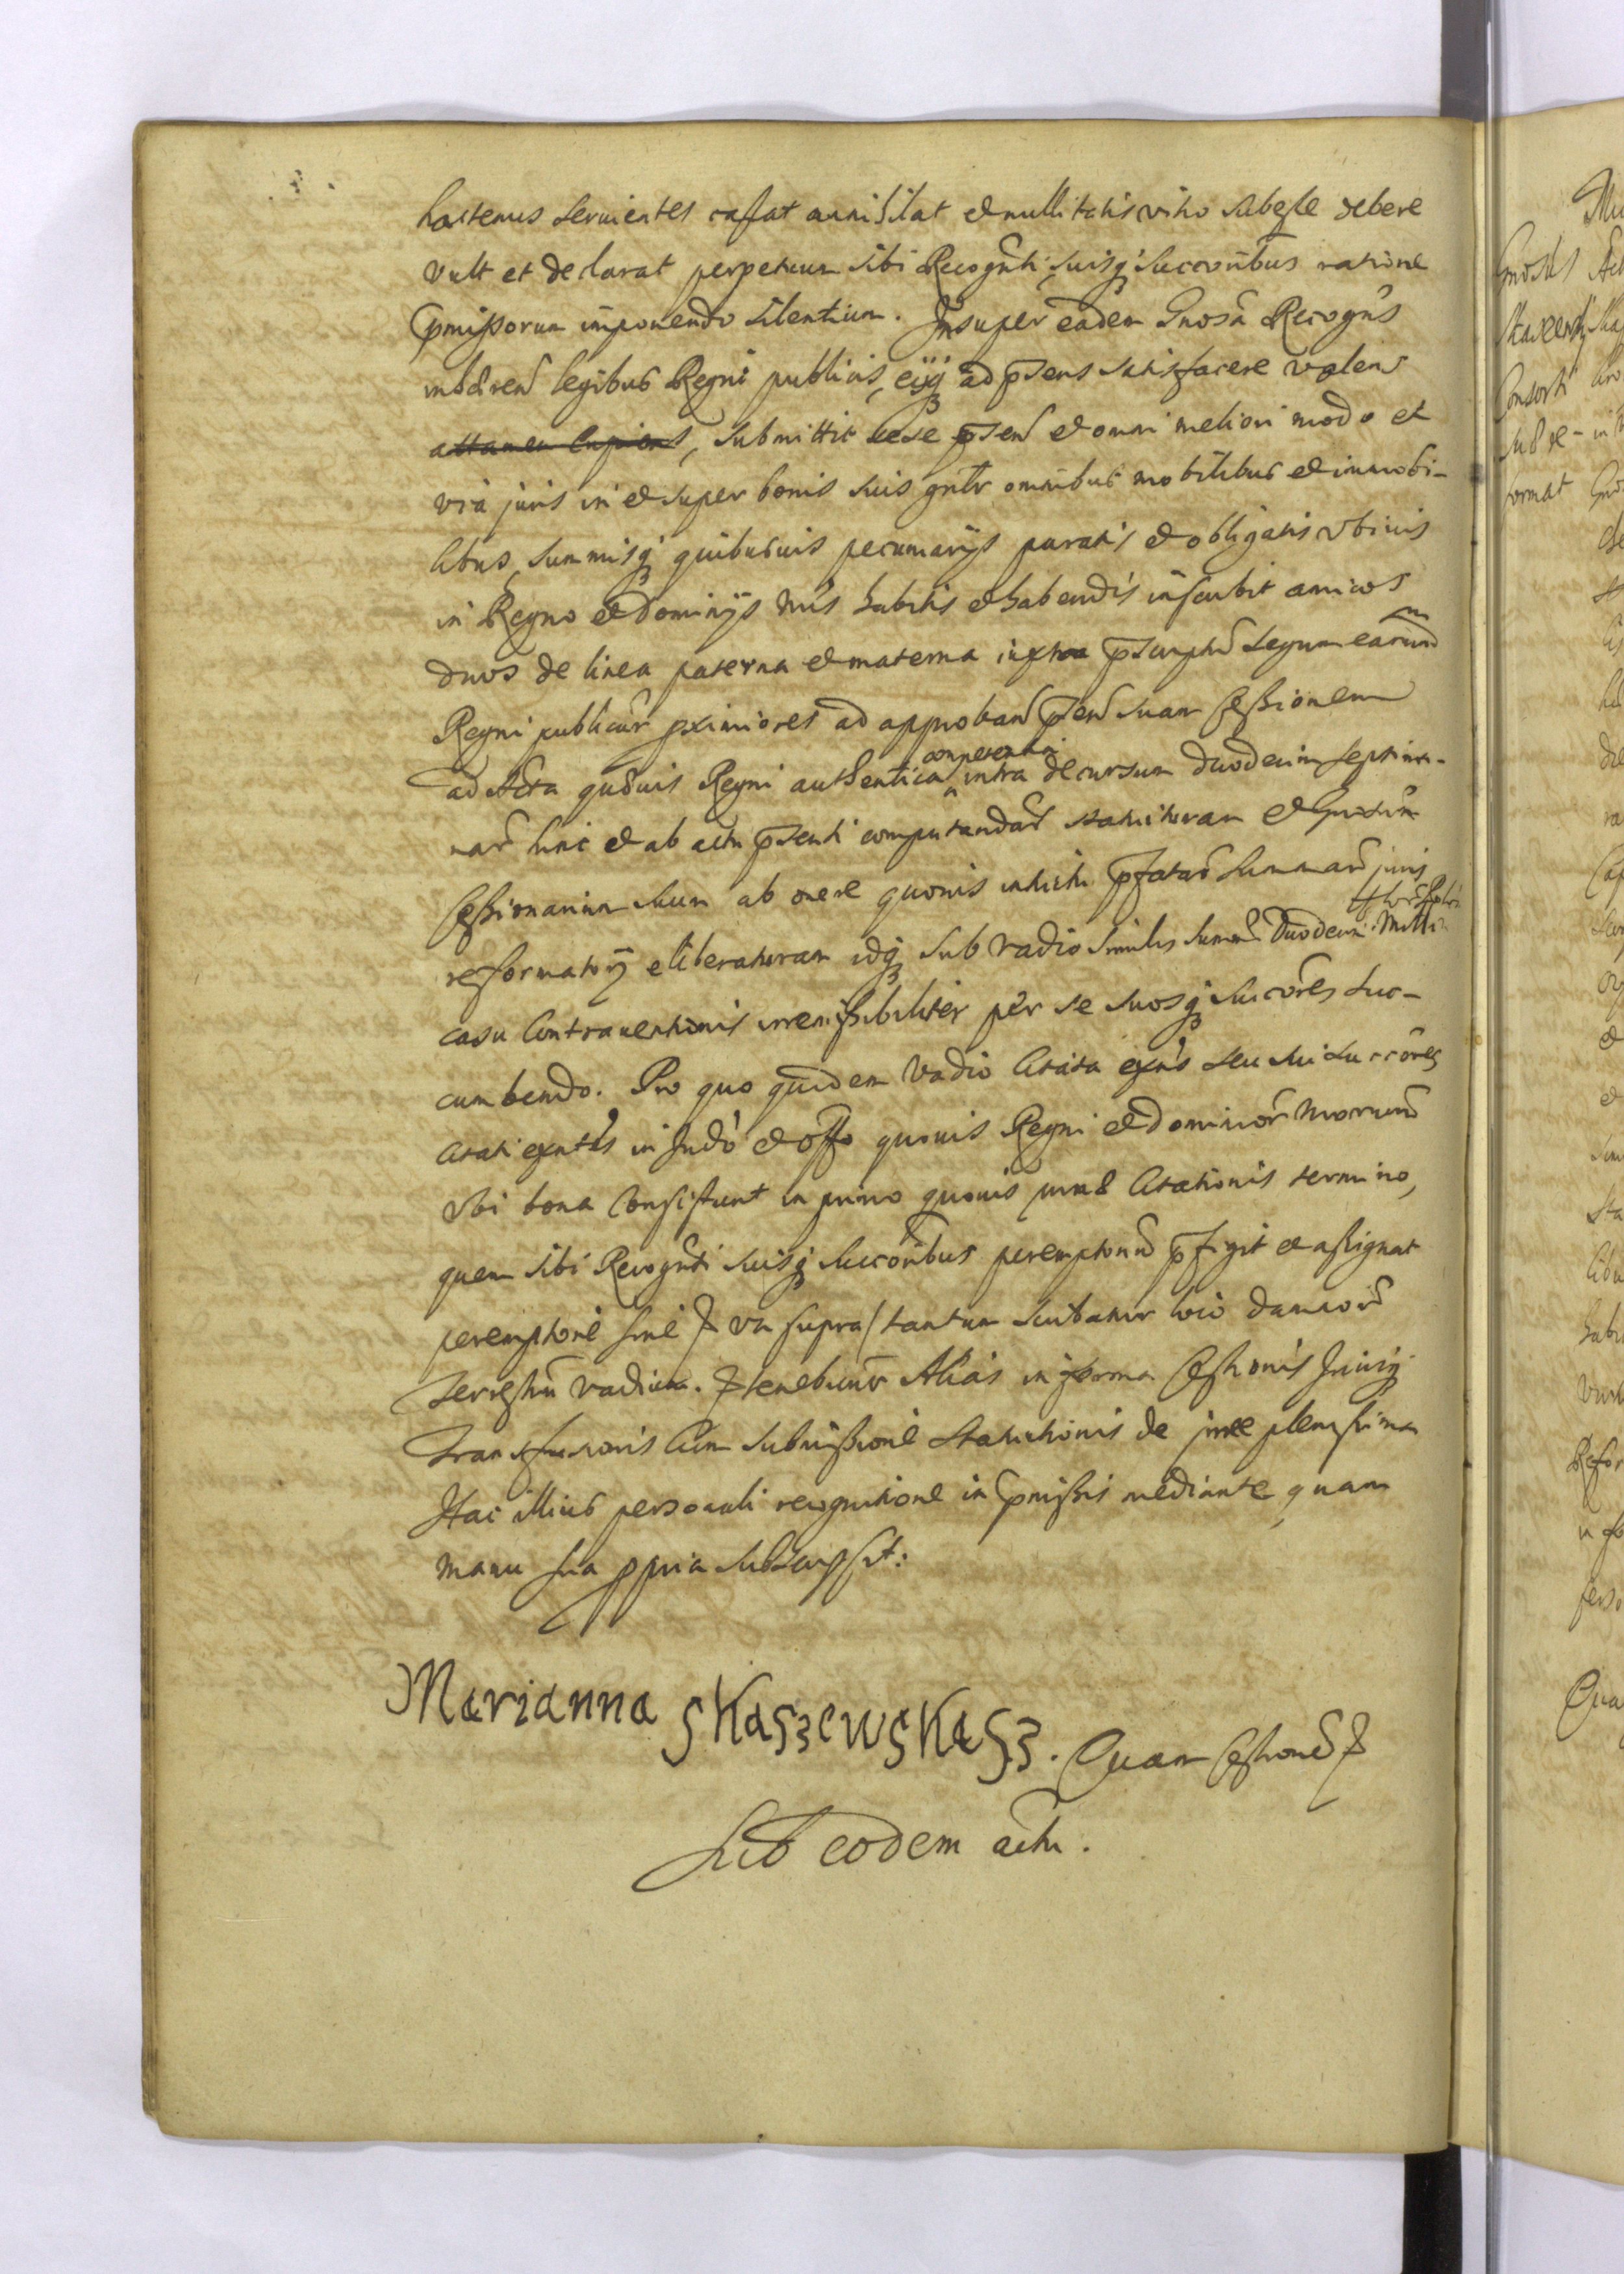 hactenus servientes cassat annihilat et nullitatis vitio subesse debere
vult et declarat perpetuum sibi Recognti suisq succoribus ratione
pmissorum imponendo silentium. Insuper eadem Gnosa Recogns
inhæren legibus Regni publicis, eisq ad psens satisfacere volens
attamen cupiens, submittit sese psen et omni meliori modo et
via juris in et super bonis suis gnlr omnibus mobilibus et immobi-
libus, summisq quibusuis pecuniarijs paratis et obligatis vbiuis
in Regno et Dominijs hujs habitis et habendis inscribit amicos
duos de linea paterna et materna iuxta pscriptu Legum earund
Regni publicar pximiores ad approband psen suam cessionem
ad Acta quæuis Regni authentica competentia intra decursum duodecim septima-
nar hinc et ab actu psenti computandar statuturam et Gnosum
cessionarium suum ab onere quouis intuitu pfatar summar juris
reformatorij eliberaturam idq sub vadio similis summæ duodecim Milli
casu contrauentionis irremissibiliter per se suosq succores suc-
cumbendo. Pro quo quidem vadio citata exns seu sui succores
citati exntes in Judo et offo quouis Regni et Dominior horum
vbi bona consistunt in primo quouis juris citationis termino,
quem sibi Recognti suisq succoribus peremptorium pfigit et assignat
peremptorie sine & vt supra / tantum scribatur loco damnor
terrestru vadium. & tenebuntr Alias in forma cessionis Juriumq
transfusionis cum submissione statuitionis de jure plenissima
Hac illius personali recognitione in pmissis mediante, quam
manu sua ppria subscripsit:
Marianna Skaszewska Sz. Quam cessione &
Sub eodem actu.